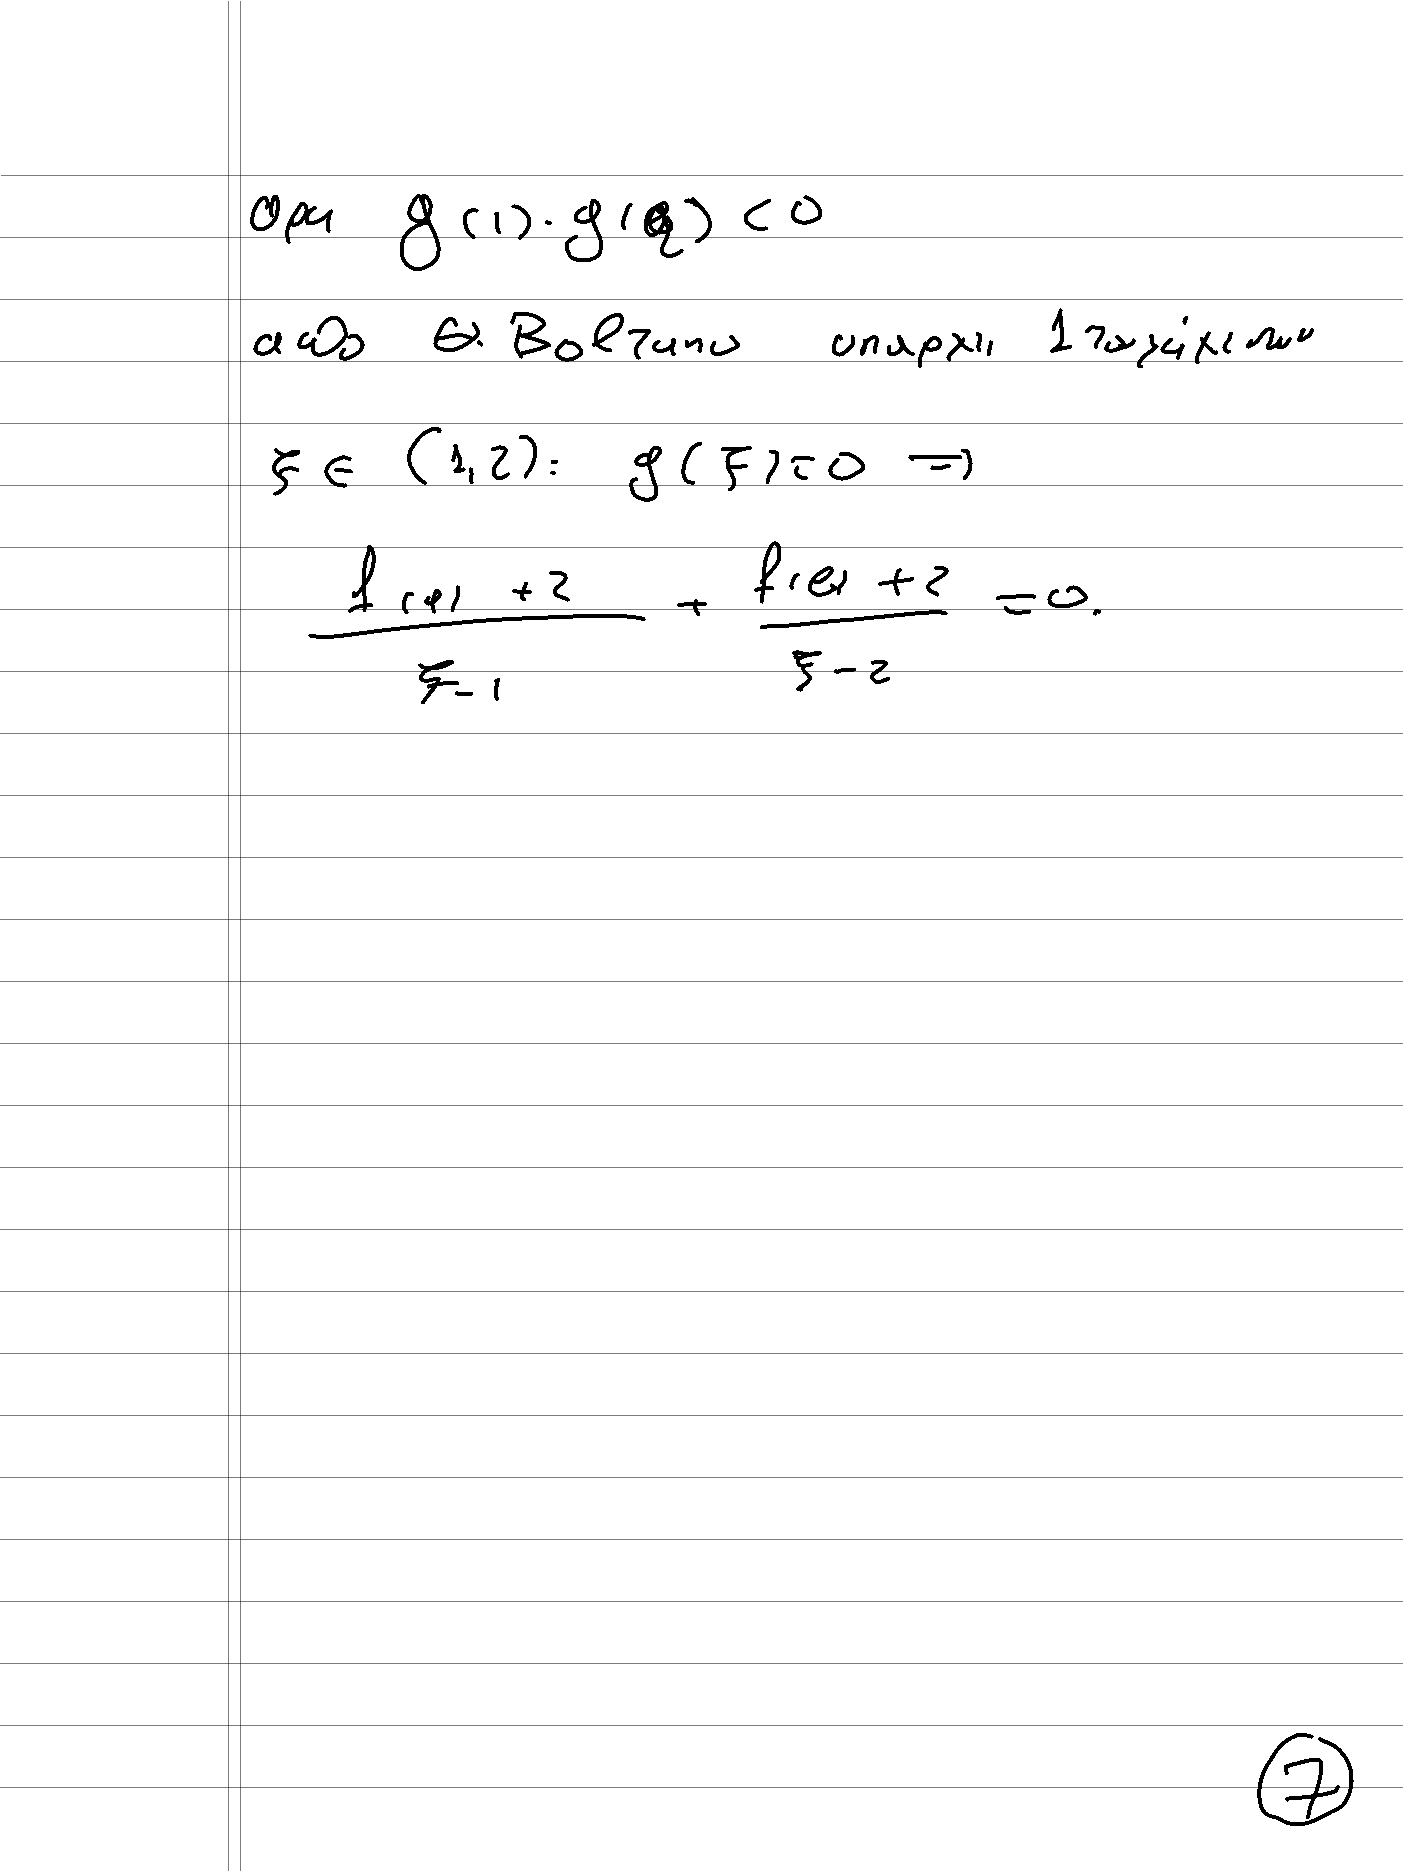 άρα g(1)·g(2) < 0
από Θ. Bolzano υπάρχει 1 τουλάχιστον
ξ ∈ (1,2): g(ξ) = 0 ⇒
f(α) + 2 / ξ - 1 + f(β) + 2 / ξ - 2 = 0.
7